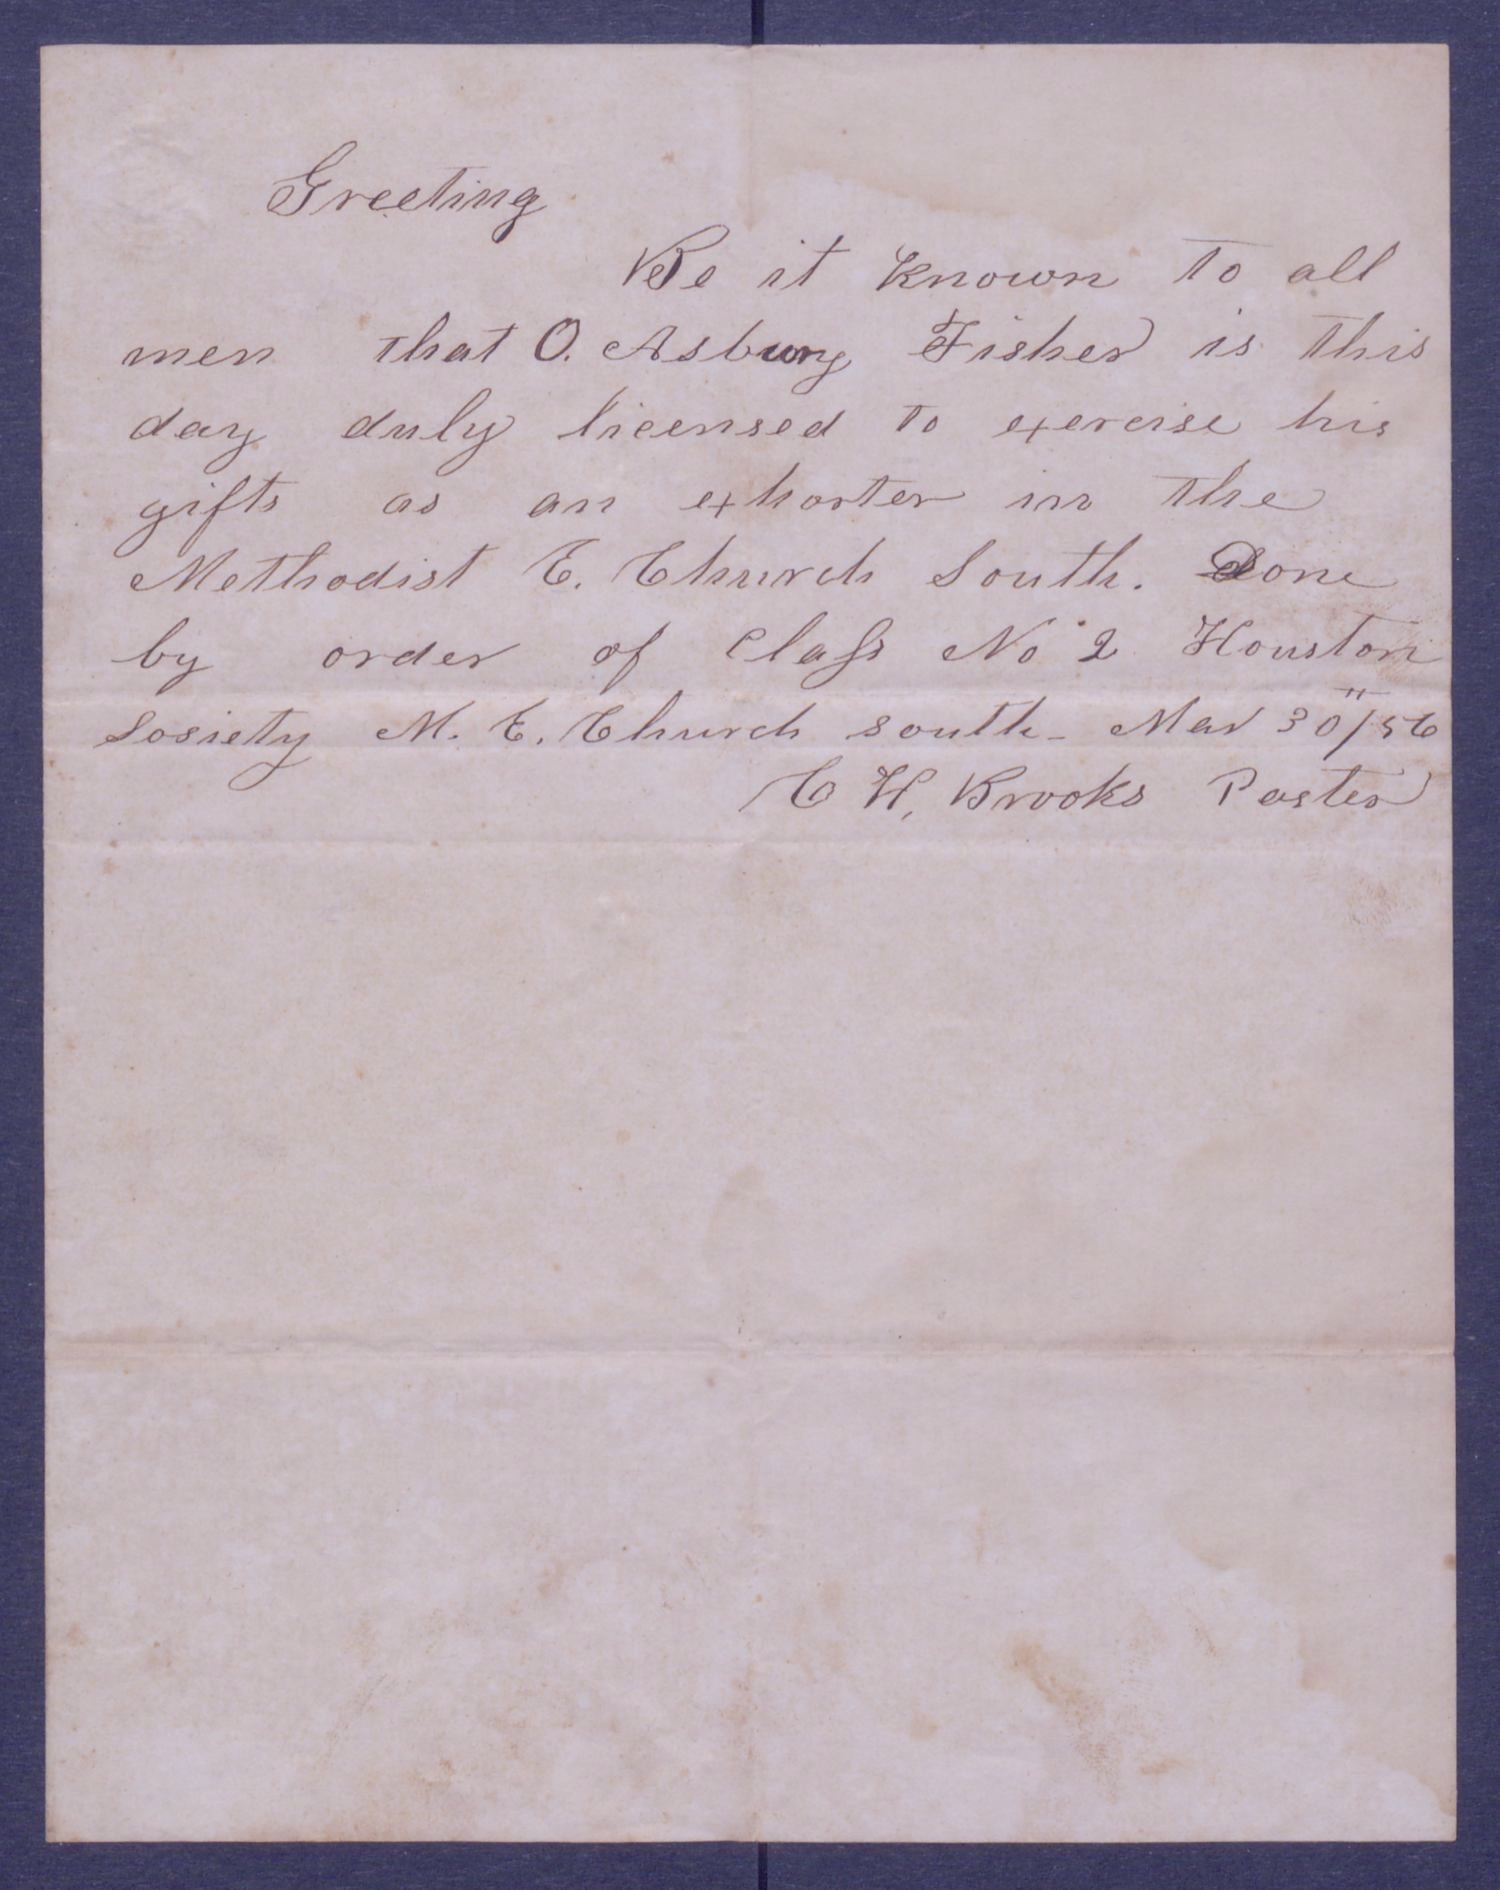 Greeting
Be it known to all
men that O. Asbury Fisher is this
day duly licensed to exercise his
gifts as an exhorter in the
Methodist E. Church South. Done
by order of Class No 2 Houston
Sosiety M. E. Church South - Mar 30"/56
C H, Brooks Paster